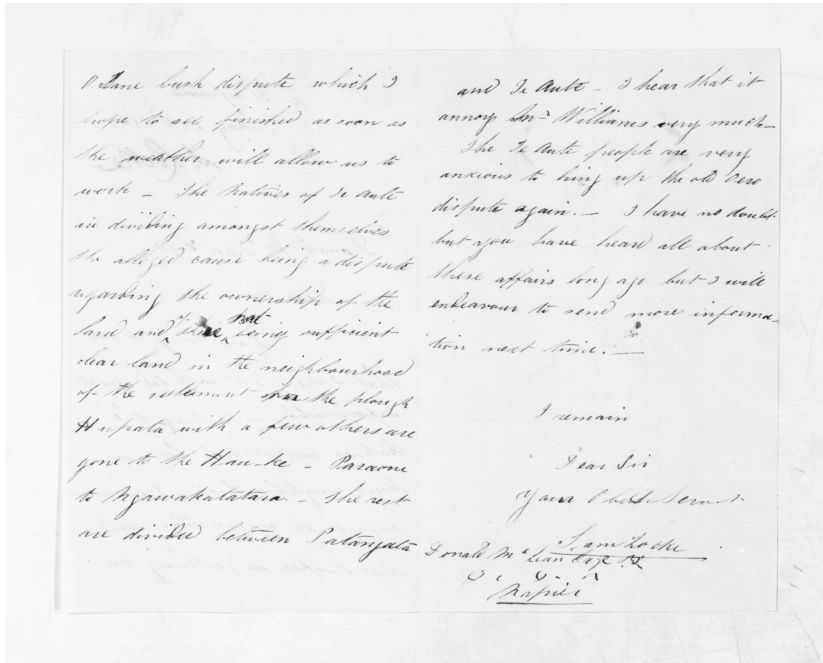 O Tane bush dispute which I
hope to see finished as soon as
the weather will allow us to
work – The Natives of Te Aute
are dividing amongst themselves
the alleged cause being a dispute
regarding the ownership of the
land and there not being sufficient
clear land in the neighbourhood
of the settlement for the plough
Hupata with a few others are
gone to the Hauke – Paraone
to Ngawakatatara – The rest
are divided between Patangata
and Te Aute – I hear that it
annoys Mr Williams very much –
The Te Aute people are very
anxious to bring up the old Oero
dispute again. – I have no doubt
but you have heard all about
these affairs long ago but I will
endeavour to send more informa-
tion next time. —
I remain
Dear Sir
Your Obedt Servt
Saml Locke
Donald McLean Esqr
Napier